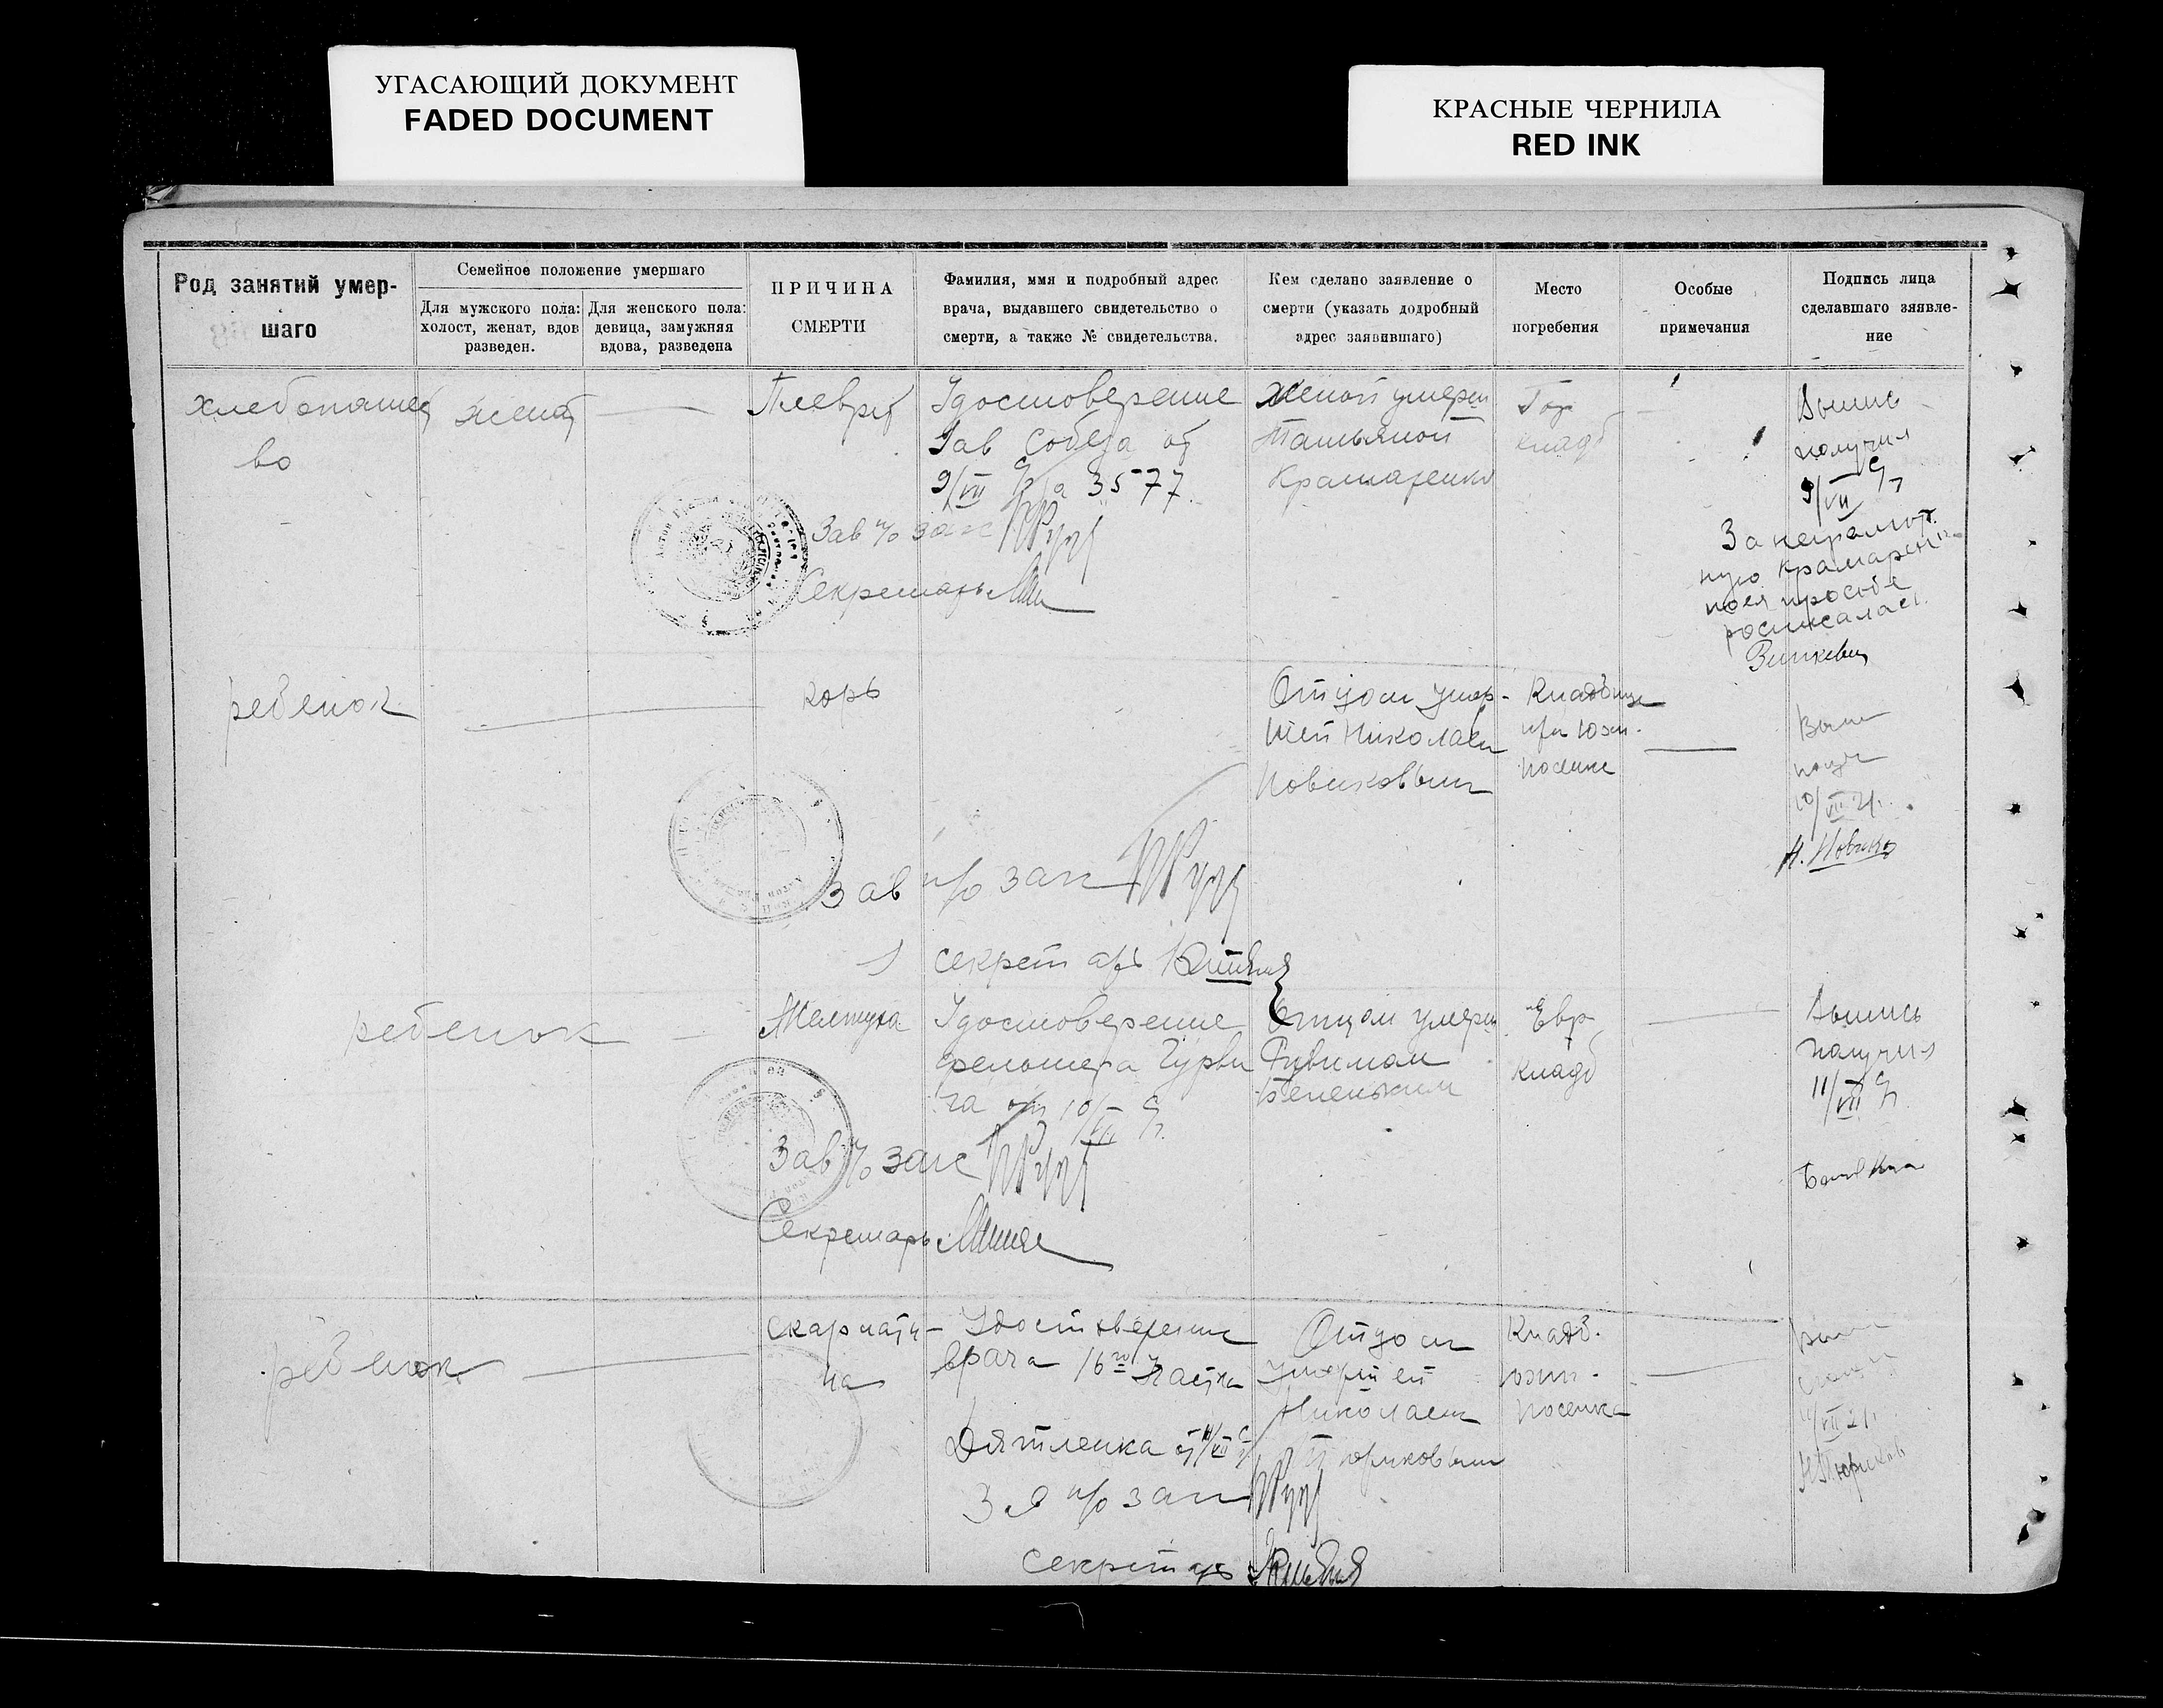 УГАСАЮЩИЙ ДОКУМЕНТ
FADED DOCUMENT
КРАСНЫЕ ЧЕРНИЛА
RED INK
Род занятий умер-
шаго
Семейное положение умершаго
Для мужского пола:
холост, женат, вдов
разведен.
Для женского пола:
девица, замужняя
вдова, разведена
ПРИЧИНА
СМЕРТИ
Фамилия, ммя и подробный адрес
врача, выдавшего свидетельство о
смерти, а также № свидетельства.
Кем сделано заявление о
смерти (указать додробный
адрес заявившаго)
Место
погребения
Особые
примечания
Подпись лица
сделавшаго зяявле-
ние
хлебопашест
во
женат
Плеврит
Удостоверение
Зав Собеза от
9/VII за 3577.
Женой умерш
Татьяной
Крамаренко
Гор
кладб
Выпись
получил
9/VII
За неграмот
ную Крамарен
поея просьбе
росписалась
Зинкевич
Зав п/о загс
Секретарь
ребенок
корь
Отцом умер-
шей Николаем
Новиковым
Кладбище
при Южн.
поселке
Вып
получ
10/VII 21.
Н. Новиков
Зав п/о загс
секретарь
ребенок
Желтуха
Удостоверение
фельшера Гурви
ча от 10/VII
Отцом умерш
Рувимом
Беленьким
Евр
кладб
Выпись
получил
11/VII
Зав п/о загс
Секретарь
ребенок
скарлати-
на
Удостоверение
врача 16го Участка
Дятленка от 11/VII
Отцом
умершей
Николаем
Тюриковым
Кладб.
южн.
поселка
Вып
11/VII 21.
Н Тюриков
Зав п/о загс
секретарь